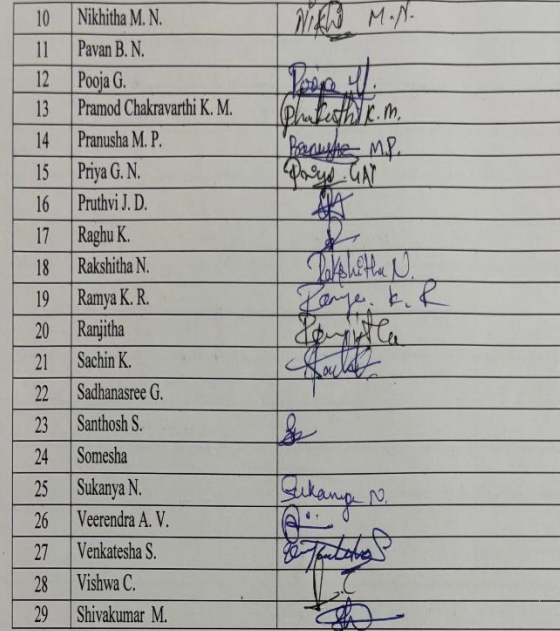 10 Nikhitha M. N. Nikhi M.N.
11 Pavan B. N.
12 Pooja G. Pooja
13 Pramod Chakravarthi K. M. K.M.
14 Pranusha M. P. Pranusha M.P.
15 Priya G. N. Priya GN
16 Pruthvi J. D.
17 Raghu K.
18 Rakshitha N. Rakshitha N.
19 Ramya K. R. Ramya. K. R
20 Ranjitha Ranjitha
21 Sachin K.
22 Sadhanasree G.
23 Santhosh S.
24 Somesha
25 Sukanya N. Sukanya N.
26 Veerendra A. V.
27 Venkatesha S.
28 Vishwa C.
29 Shivakumar M.